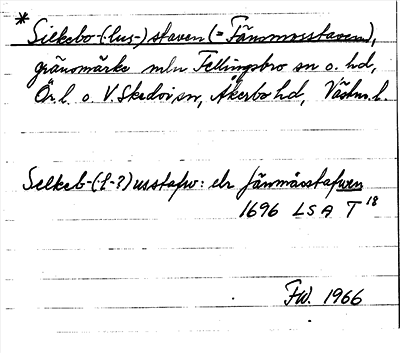 * Silkebo-(-lus-) staven (= Fänmosstaven),
gränsmärke mln Fellingsbro sn o. hd,
Ör l. o. V. Skedvi sn, Åkerbo hd, Västm. l.
Selkeb-(-l-?) usstafw: elr fänmåsstafwen
1696 LSA T 18
FW. 1966